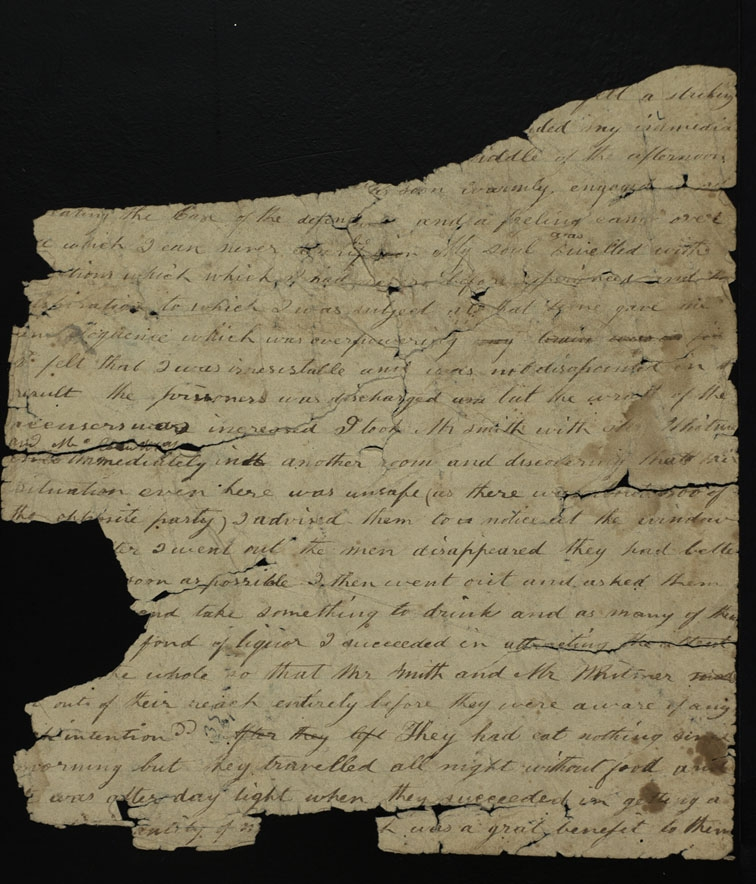 felt a striking
ided my immedia
iddle of the afternoon
as soon warmly engaged
rating the Case of the defend and a feeling came over
which I can never My soul was swelled with
otions which which I had before experienced and the
to which I was subject at that time gave me
an eloquence which was overpowering my
I felt that I was irresistable and was not disapointed in
result the prissoners was discharged but the wrath of the
accusers was increased I took Mr Smith with Whitmer
and Mr
immediately into another room and discovering that
situation even here was unsafe (as there was of
the opposite party) I advised them to at the window
ter I went out the men disappeared they had bette
soon as possible I then went out and asked them
and take something to drink and as many of them
fond of liquor I succeeded in attracting the attent
he whole so that Mr Smith and Mr Whitmer was
out of their reach entirely before they were aware of any
intention After they left They had eat nothing since
morning but they travelled all night without food and
was after day light when they succeeded in getting a
antity of
h was a grat benefit to them